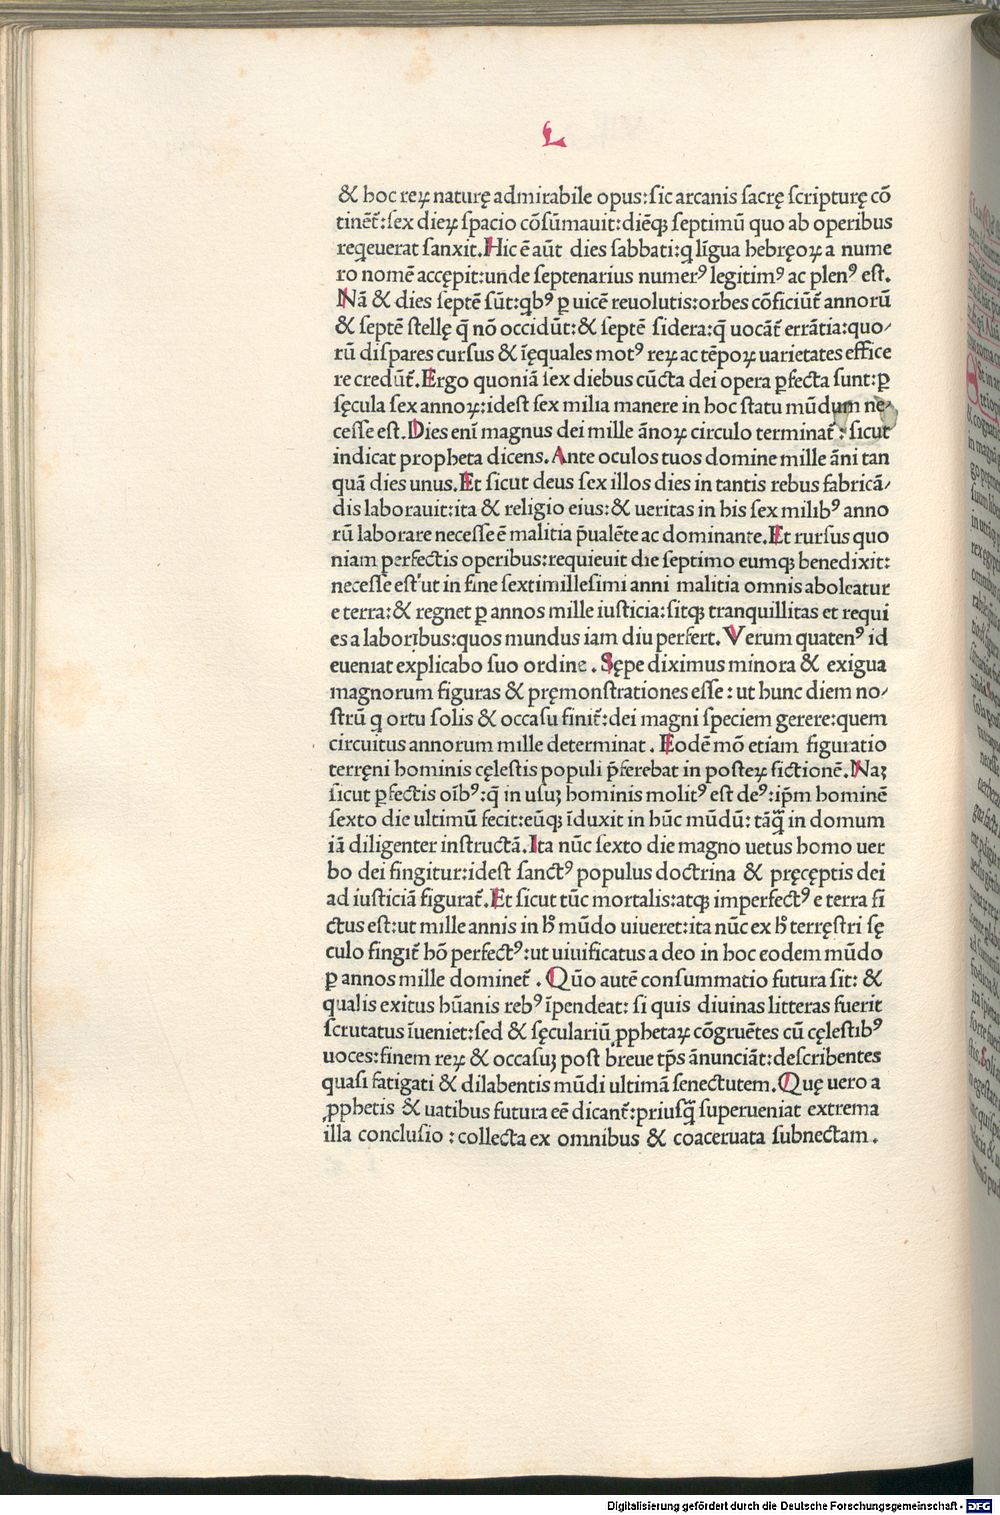 L
& hoc reꝝ naturę admirabile opus:sic arcanis sacrę scripturę cō
tinēt̃:sex dieꝝ spacio cōsūmauit:diēqꝫ septimū quo ab operibus
reqeuerat sanxit.Hic ē aūt dies sabbati:q līgua hebręoꝝ a nume
ro nomē accępit:unde septenarius numerꝰ legitimꝰ ac plenꝰ est.
Nā & dies septē sūt:qbꝰ ꝑ uicē reuolutis:orbes cōficiūt̃ annorū
& septē stellę q̄ nō occidūt:& septē sidera:q̄ uocāt̃ errātia:quo/
rū dispares cursus & īęquales motꝰ reꝝ ac tēpoꝝ uarietates effice
re credūt̃.Ergo quoniā sex diebus cūcta dei opera ꝑfecta sunt:ꝑ
sęcula sex annoꝝ:idest sex milia manere in hoc statu mūdum ne/
cesse est.Dies enī magnus dei mille ānoꝝ circulo terminat̃:sicut
indicat propheta dicens.Ante oculos tuos domine mille āni tan
quā dies unus.Et sicut deus sex illos dies in tantis rebus fabricā/
dis laborauit:ita & religio eius:& ueritas in his sex milibꝰ anno
rū laborare necesse ē malitia p̄ualēte ac dominante.Et rursus quo
niam perfectis operibus:requieuit die septimo eumqꝫ benedixit:
necesse est ut in fine sextimillesimi anni malitia omnis aboleatur
e terra:& regnet ꝑ annos mille iusticia:sitqꝫ tranquillitas et requi
es a laboribus:quos mundus iam diu perfert.Verum quatenꝰ id
eueniat explicabo suo ordine.Sępe diximus minora & exigua
magnorum figuras & pręmonstrationes esse:ut hunc diem no/
strū q ortu solis & occasu finit̃:dei magni speciem gerere:quem
circuitus annorum mille determinat.Eodē mō etiam figuratio
terręni hominis cęlestis populi p̄ferebat in posteꝝ fictionē.Naꝫ
sicut ꝑfectis oībꝰ:q̄ in usuꝫ hominis molitꝰ est deꝰ:ip̄m hominē
sexto die ultimū fecit:eūqꝫ īduxit in hūc mūdū:tāq̄ in domum
iā diligenter instructā.Ita nūc sexto die magno uetus homo uer
bo dei fingitur:idest sanctꝰ populus doctrina & pręcęptis dei
ad iusticiā figurat̃.Et sicut tūc mortalis:atqꝫ imperfectꝰ e terra fi
ctus est:ut mille annis in h̄ mūdo uiueret:ita nūc ex h̄ terręstri sę
culo fingit̃ hō perfectꝰ:ut uiuificatus a deo in hoc eodem mūdo
ꝑ annos mille dominet̃.Qūo autē consummatio futura sit:&
qualis exitus hūanis rebꝰ īpendeat:si quis diuinas litteras fuerit
scrutatus īueniet:sed & sęculariū ꝓphetaꝝ cōgruētes cū cęlestibꝰ
uoces:finem reꝝ & occasuꝫ post breue tp̄s ānunciāt:describentes
quasi fatigati & dilabentis mūdi ultimā senectutem.Quę uero a
ꝓphetis & uatibus futura eē dicant̃:priusq̄ superueniat extrema
illa conclusio:collecta ex omnibus & coaceruata subnectam.
Digitalisierung gefördert durch die Deutsche Forschungsgemeinschaft - DFG